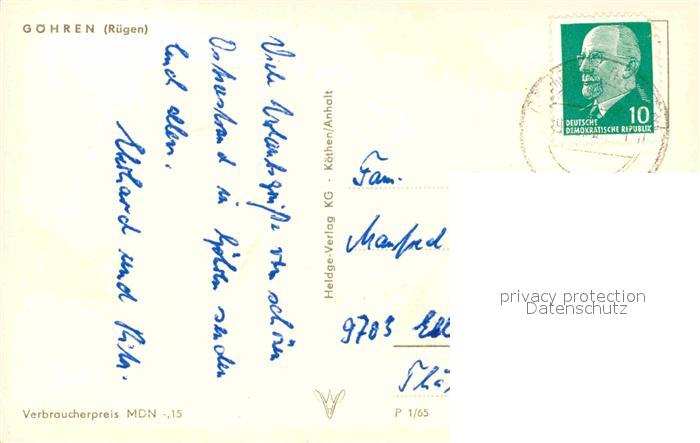 GÖHREN (Rügen)
Viele Urlaubsgrüße vom schönen
Ostseestrand in Göhren senden
Euch allen.
Ekkehard und
Heldge-Verlag KG · Köthen/Anhalt
10
DEUTSCHE
DEMOKRATISCHE REPUBLIK
Fam.
Manfred
privacy protection
Datenschutz
Verbraucherpreis MDN -,15
P 1/65